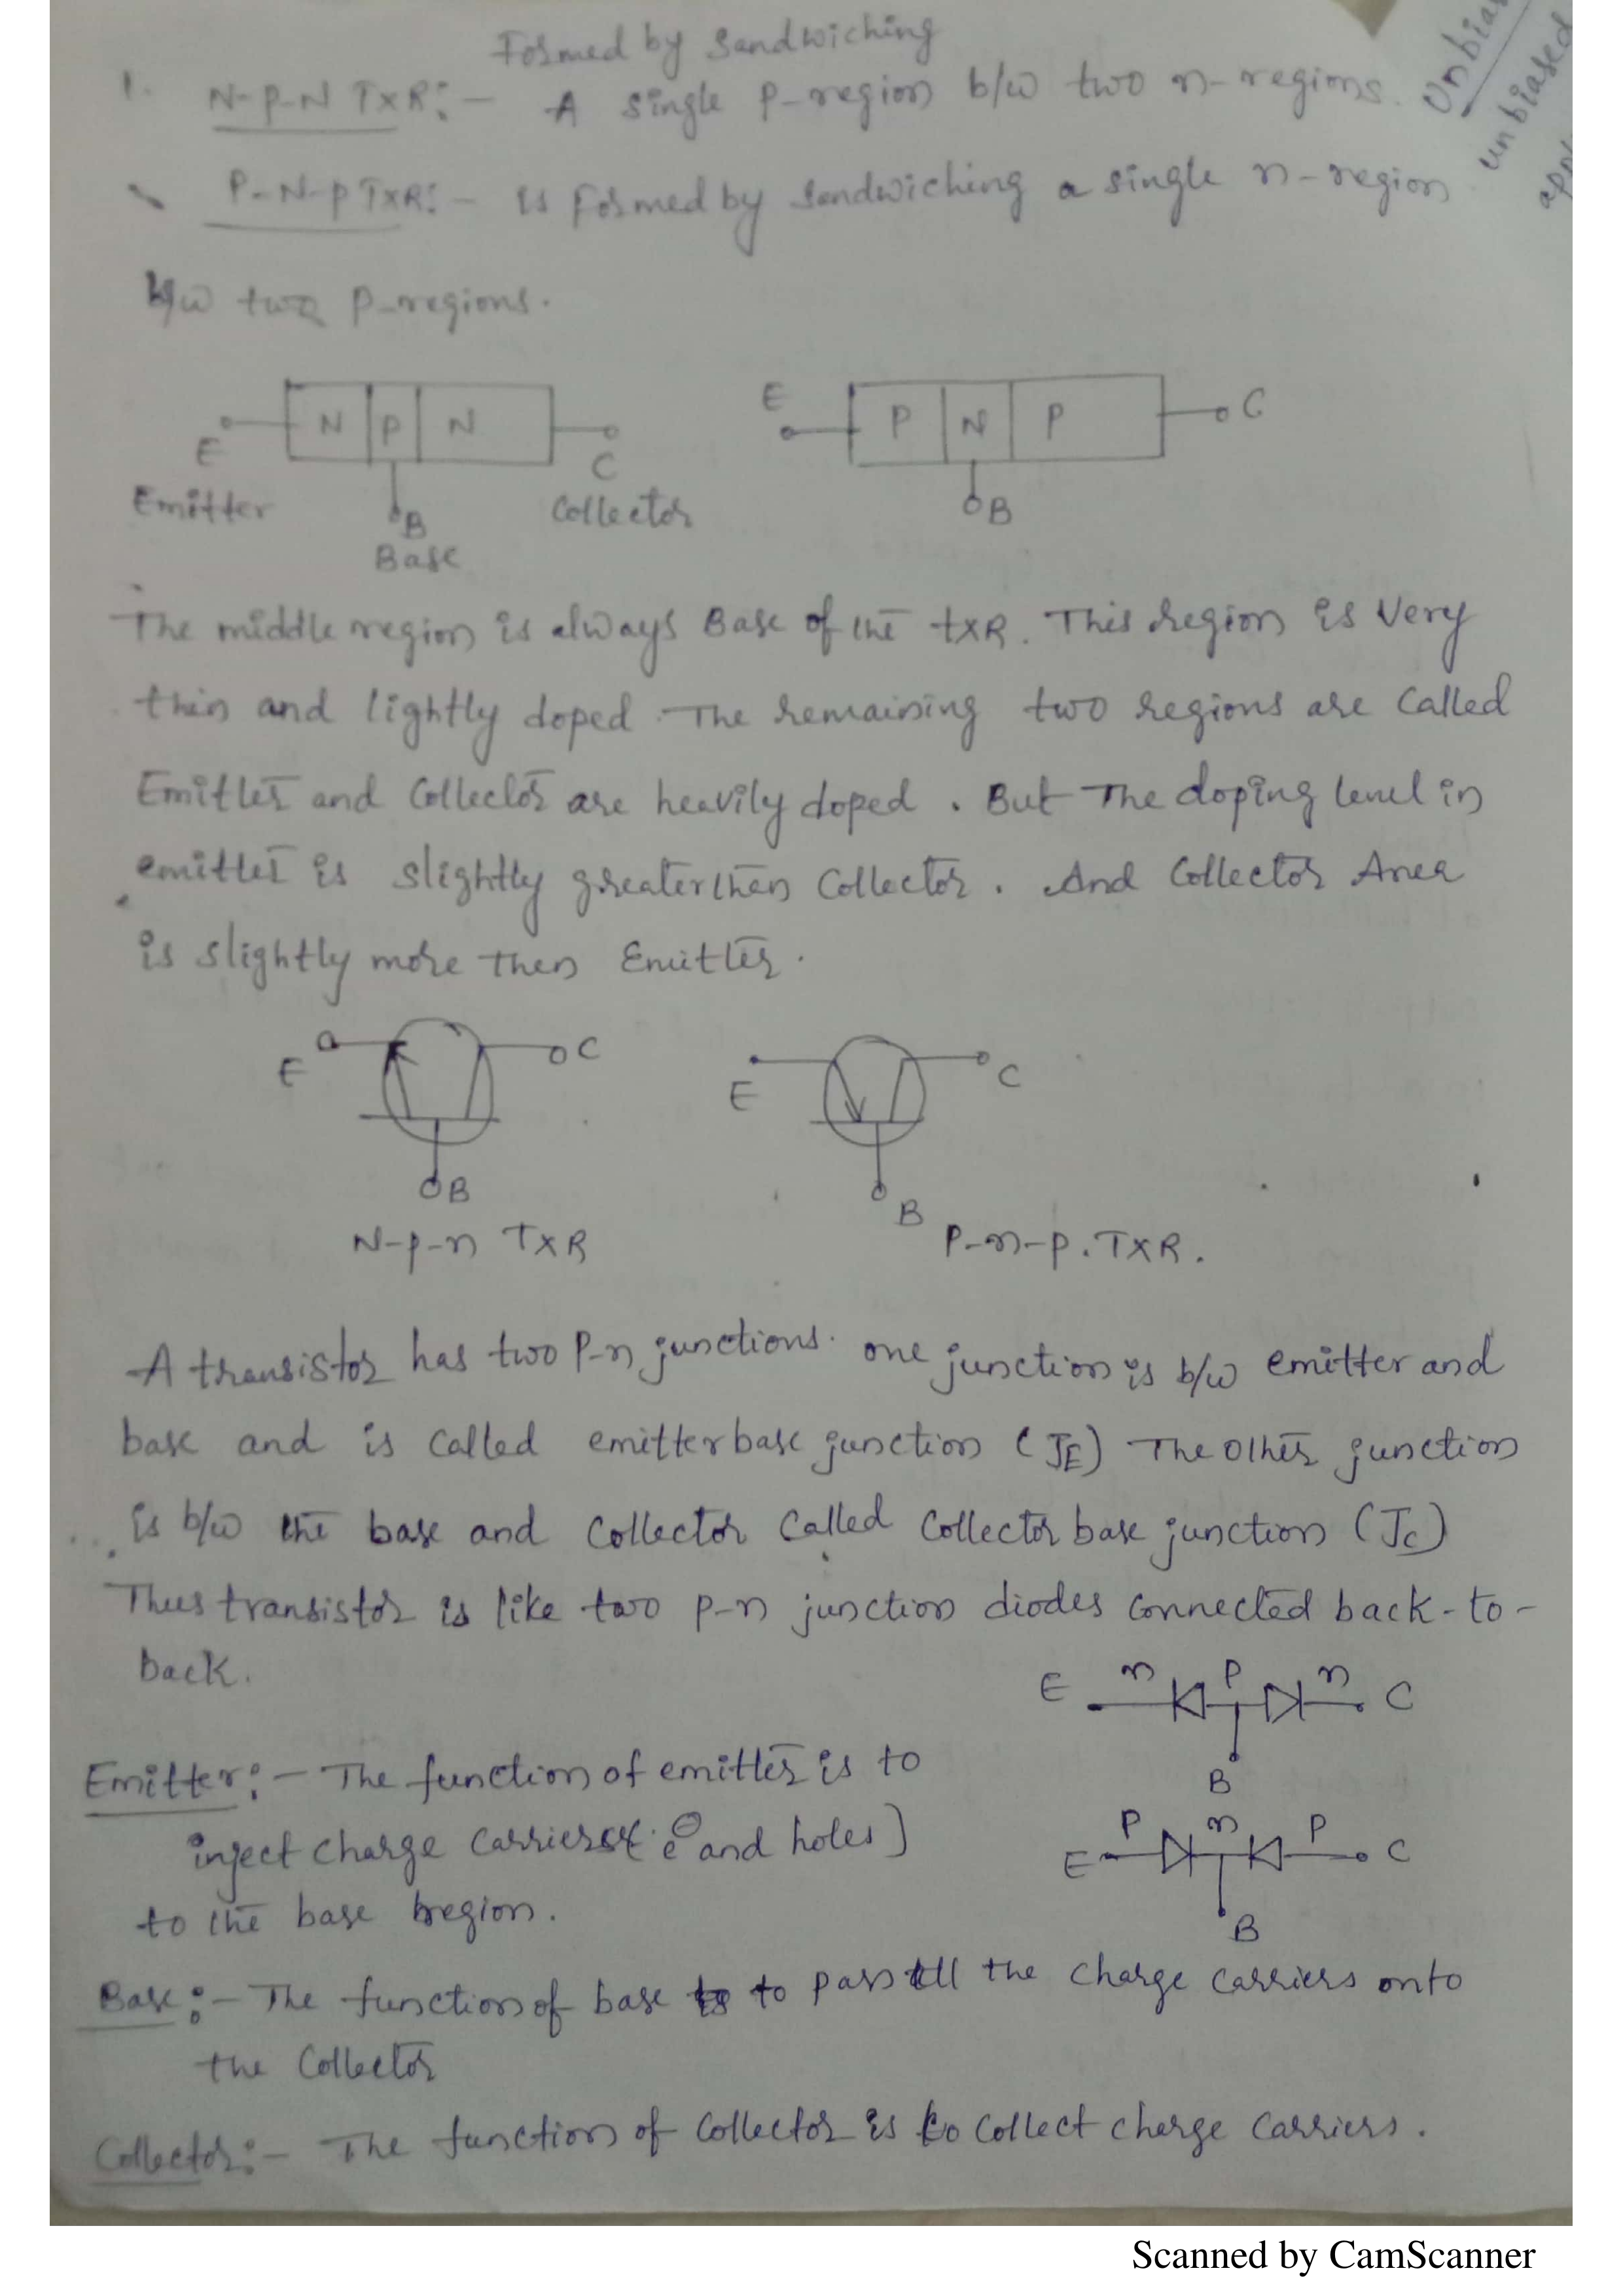 Formed by Sandwiching
1. N-P-N TXR:- A single P-region b/w two n-regions.
P-N-P TXR:- is Formed by Sandwiching a single n-region
b/w two P-regions.
Unbias
unbiased
E N P N C
E P N P C
Emitter B Collector
B
Base
The middle region is always Base of the TXR. This region is Very
thin and lightly doped. The remaining two regions are Called
Emitter and Collector are heavily doped. But The doping level in
emitter is slightly greater then Collector. And Collector Area
is slightly more then Emitter.
E C
E C
B
B
N-p-n TXR
P-n-p. TXR.
A transistor has two P-n junctions. one junction is b/w emitter and
base and is Called emitter base junction (JE) The other junction
is b/w the base and Collector Called Collector base junction (JC)
Thus transistor is like two p-n junction diodes Connected back-to-
back.
E n P n C
B
Emitter:- The function of emitter is to
inject charge Carriers e⊖ and holes]
to the base region.
E P n P C
B
Base:- The function of base to pass all the charge Carriers onto
the Collector
Collector:- The function of Collector is to Collect charge Carriers.
Scanned by CamScanner